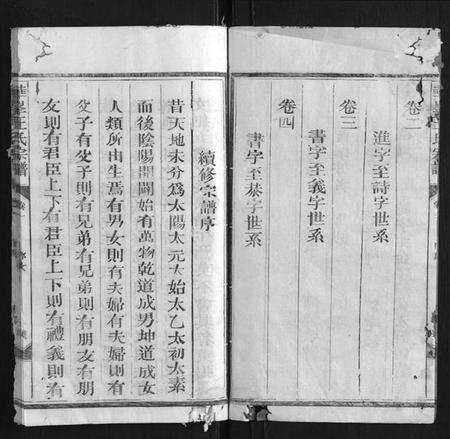 卷二
進字至詩字世系
卷三
書字至義字世系
卷四
書字至恭字世系
續修宗譜序
昔天地未分爲太陽太元太始太乙太初太素
而後陰陽開闢始有萬物乾道成男坤道成女
人類所由生焉有男女則有夫婦有夫婦則有
父子有父子則有兄弟有兄弟則有朋友有朋
友則有君臣上下有君臣上下則有禮義則有
汪氏宗譜